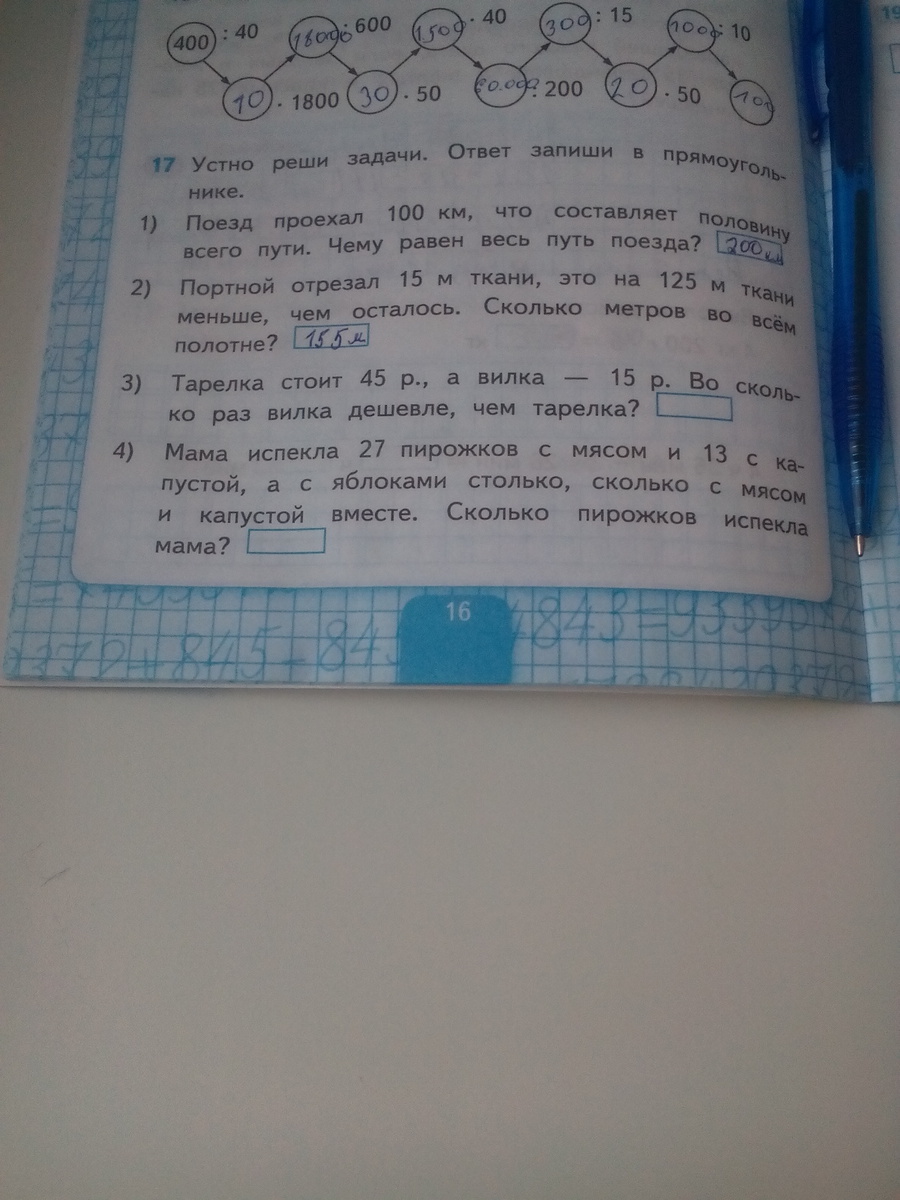 400 : 40 18000 : 600 1500 · 40 300 : 15 1000 : 10
10 · 1800 30 · 50 60.000 : 200 20 · 50 100
17 Устно реши задачи. Ответ запиши в прямоуголь-
нике.
1) Поезд проехал 100 км, что составляет половину
всего пути. Чему равен весь путь поезда? 200 км
2) Портной отрезал 15 м ткани, это на 125 м ткани
меньше, чем осталось. Сколько метров во всём
полотне? 155 м
3) Тарелка стоит 45 р., а вилка — 15 р. Во сколь-
ко раз вилка дешевле, чем тарелка?
4) Мама испекла 27 пирожков с мясом и 13 с ка-
пустой, а с яблоками столько, сколько с мясом
и капустой вместе. Сколько пирожков испекла
мама?
16
19